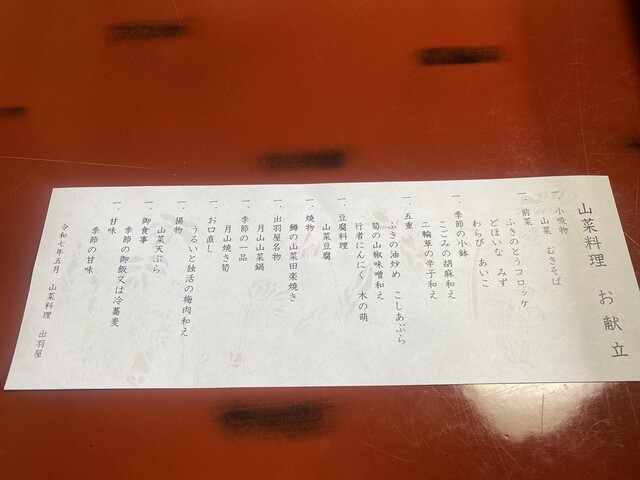 山菜料理 お献立
一、小吸物
山菜 むきそば
一、前菜
ふきのとうコロッケ
どほいな みず
わらび あいこ
一、季節の小鉢
こごみの胡麻和え
二輪草の辛子和え
一、五重
ふきの油炒め こしあぶら
筍の山椒味噌和え
行者にんにく 木の萌
一、豆腐料理
山菜豆腐
一、焼物
鱒の山菜田楽焼き
一、出羽屋名物
月山山菜鍋
一、季節の一品
月山焼き筍
一、お口直し
うるいと独活の梅肉和え
一、揚物
山菜天ぷら
一、御食事
季節の御飯又は冷蕎麦
一、甘味
季節の甘味
令和七年五月 山菜料理 出羽屋